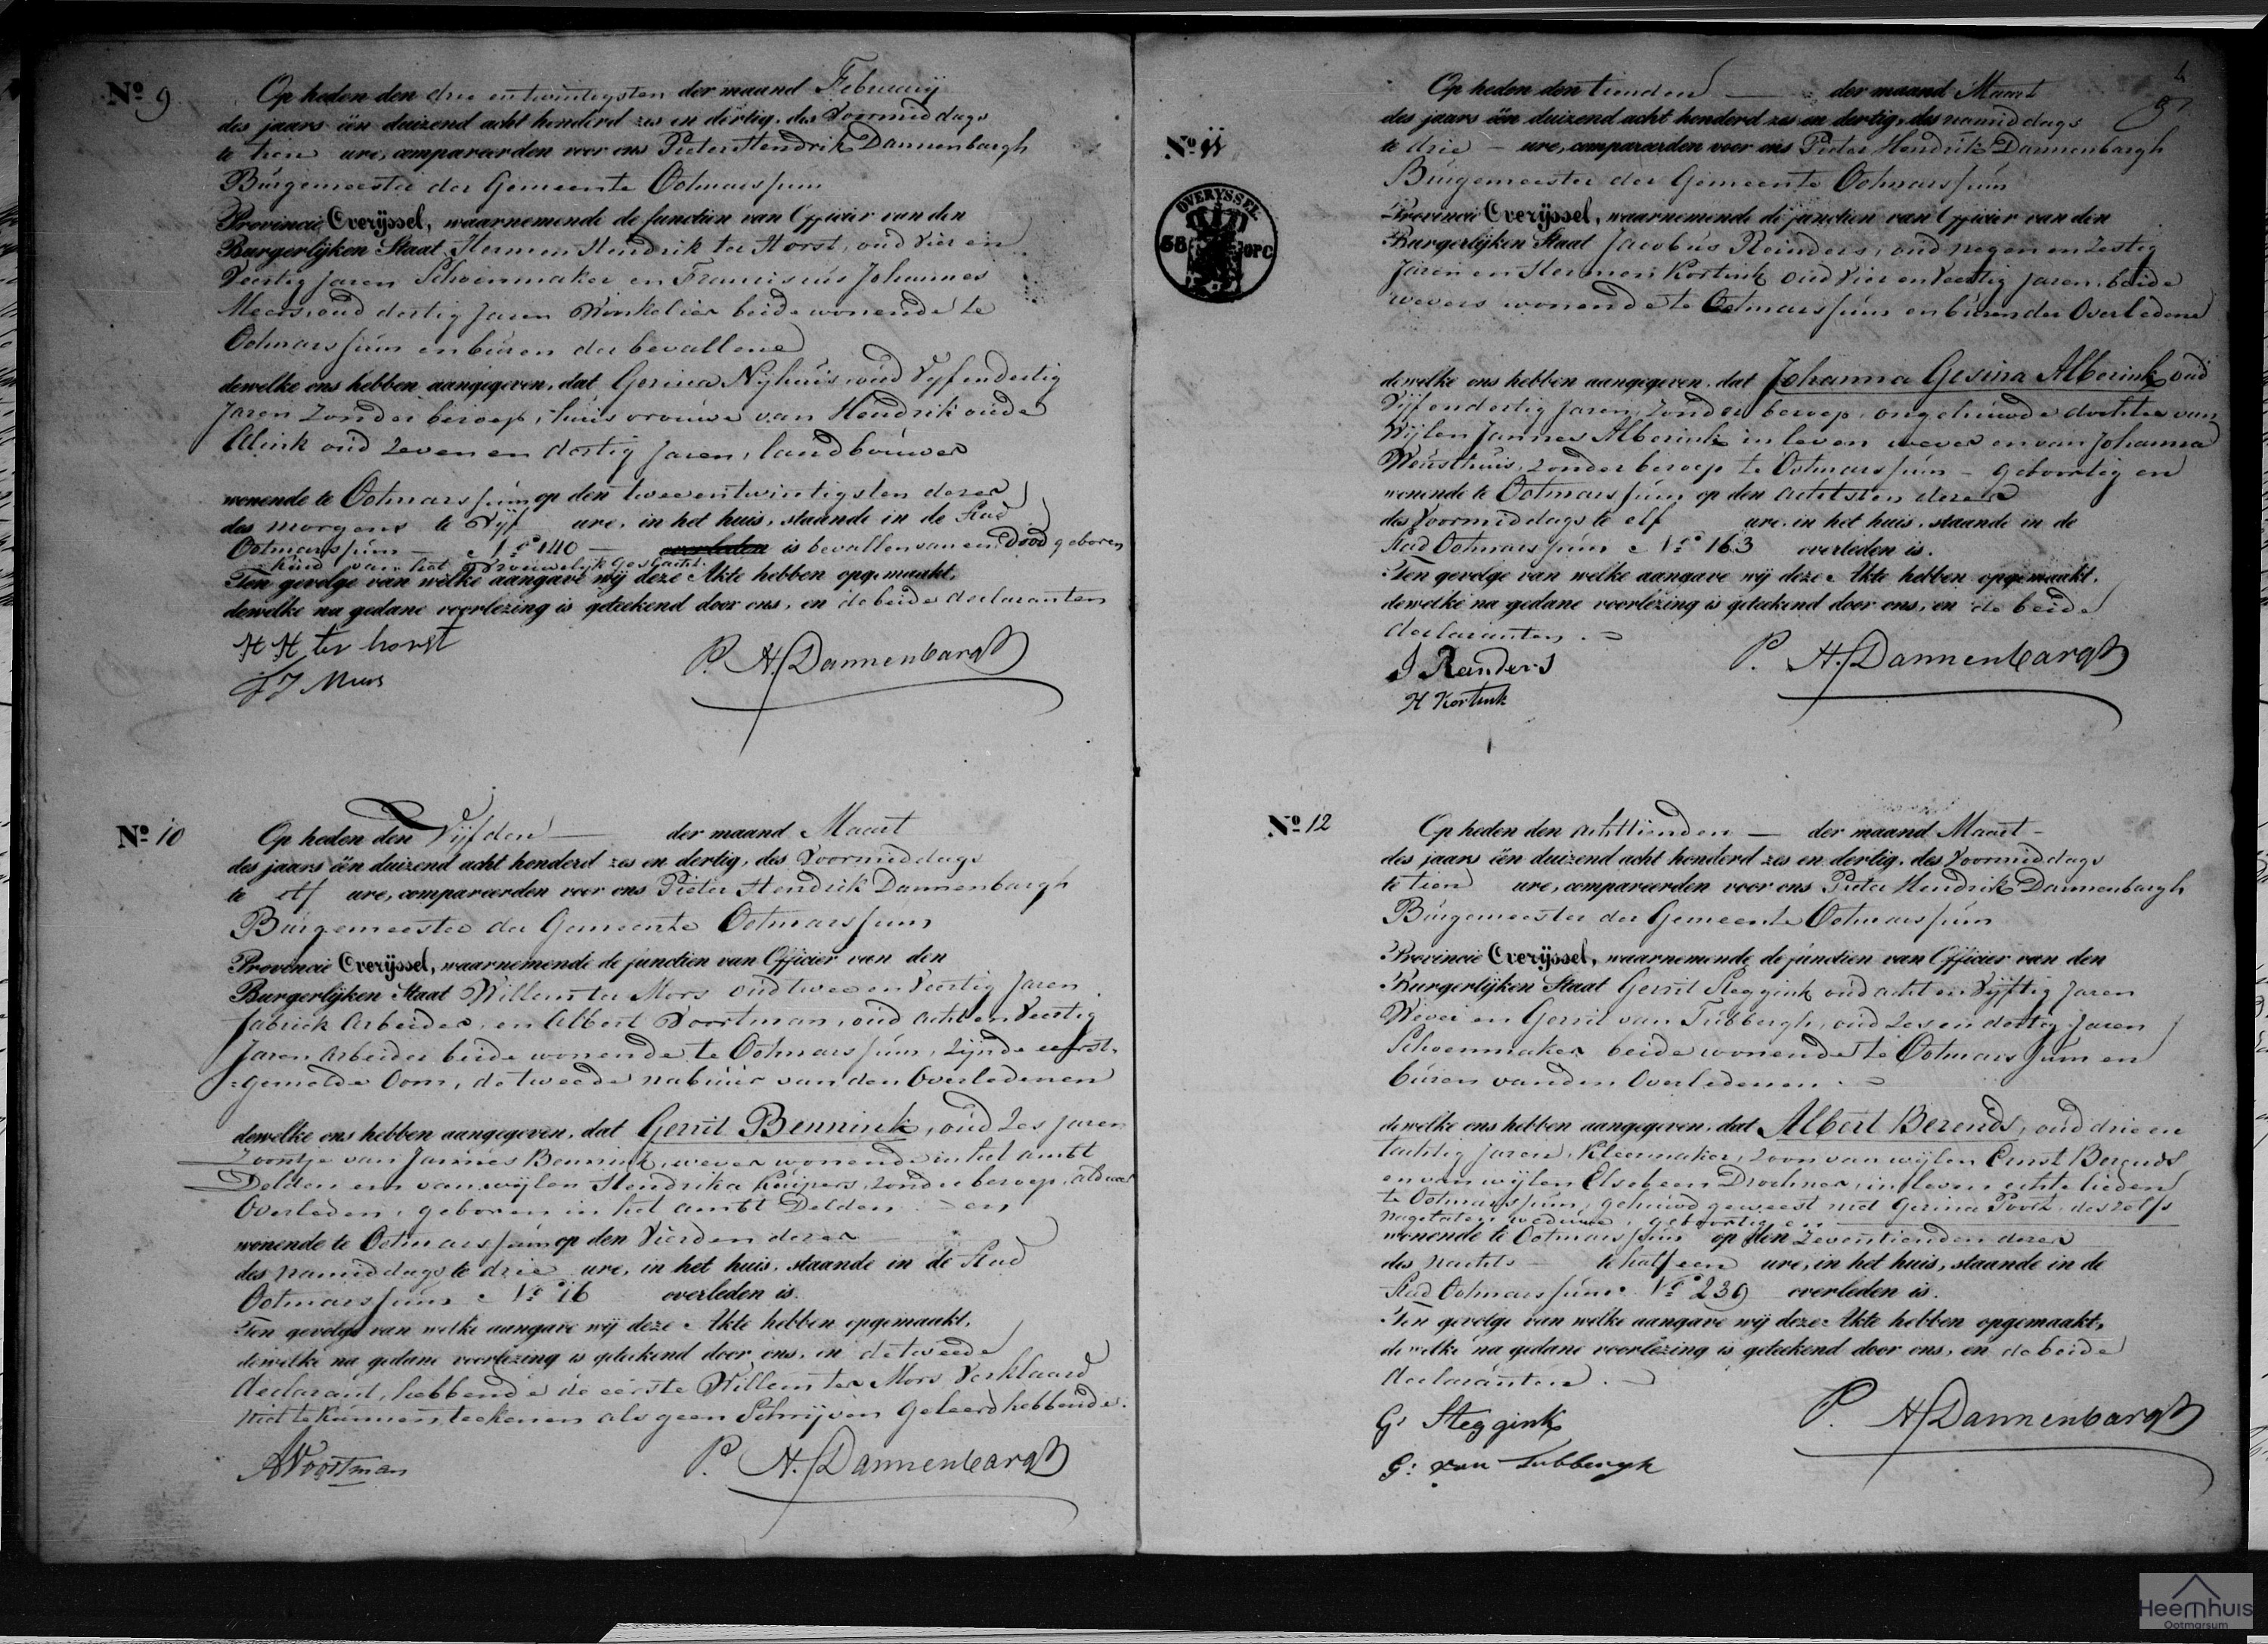 No 9
Op heden den drie en twintigsten der maand February
des jaars één duizend acht honderd zes en dertig, des Voormiddags
te tien ure, compareerden voor ons Pieter Hendrik Dannenbargh
Burgemeester der Gemeente Ootmarssum
Provincie Overijssel, waarnemende de functien van Officier van den
Burgerlijken Staat Hermen Hendrik ter Horst, oud Vier en
Veertig Jaren Schoenmaker en Franciscus Johannes
Meers, oud dertig Jaren Winkelier beide wonende te
Ootmarssum en buren der bevallene
dewelke ons hebben aangegeven, dat Gesina Nijhuis, oud Vijf en dertig
Jaren Zonder beroep, huisvrouwe van Hendrik oude
Alink oud Zeven en dertig Jaren, landbouwer
wonende te Ootmarssum op den twee en twintigsten dezer
des morgens te Vijf ure, in het huis, staande in de Stad
Ootmarssum No 140 overleden is bevallen van een dood geboren
kind van het Vrouwelijk geslacht
Ten gevolge van welke aangave wij deze Akte hebben opgemaakt,
dewelke na gedane voorlezing is geteekend door ons, en de beide declaranten
H H ter horst
F J Meers
P. H. Dannenbargh
No 10
Op heden den Vijfden der maand Maart
des jaars één duizend acht honderd zes en dertig, des Voormiddags
te elf ure, compareerden voor ons Pieter Hendrik Dannenbargh
Burgemeester der Gemeente Ootmarssum
Provincie Overijssel, waarnemende de functien van Officier van den
Burgerlijken Staat Willem ter Mors oud twee en Veertig Jaren
fabriek Arbeider, en Albert Voortman, oud acht en Veertig
Jaren Arbeider beide wonende te Ootmarssum, Zijnde eerst-
gemelde Oom, de tweede nabuur van den Overledenen
dewelke ons hebben aangegeven, dat Gerrit Bennink, oud Zes jaren
Zoontje van Jannes Bennink, wever wonende in het ambt
Delden en van wijlen Hendrika Kuipers, Zonder beroep, aldaar
Overleden, geboren in het ambt Delden en
wonende te Ootmarssum op den Vierden dezer
des namiddags te drie ure, in het huis, staande in de Stad
Ootmarssum No 16 overleden is.
Ten gevolge van welke aangave wij deze Akte hebben opgemaakt,
dewelke na gedane voorlezing is geteekend door ons, en de tweede
declarant, hebbende de eerste Willem ter Mors Verklaard
niet te kunnen teekenen als geen Schrijven geleerd hebbende.
A Voortman
P. H. Dannenbargh
No 11
OVERYSSEL
OPC
Op heden den tienden der maand Maart
des jaars één duizend acht honderd zes en dertig, des namiddags
te drie ure, compareerden voor ons Pieter Hendrik Dannenbargh
Burgemeester der Gemeente Ootmarssum
Provincie Overijssel, waarnemende de functien van Officier van den
Burgerlijken Staat Jacobus Reinders, oud negen en Zestig
Jaren en Hermen Kortink oud Vier en Veertig Jaren, beide
wevers wonende te Ootmarssum en buren der Overledene
dewelke ons hebben aangegeven, dat Johanna Gesina Alberink, oud
Vijf en dertig Jaren, Zonder beroep, ongehuwde dochter van
Wijlen Jannes Alberink in leven wever en van Johanna
Weusthuis, Zonder beroep te Ootmarssum – geboortig en
wonende te Ootmarssum op den achtsten dezer
des Voormiddags te elf ure, in het huis, staande in de
Stad Ootmarssum No 163 overleden is.
Ten gevolge van welke aangave wij deze Akte hebben opgemaakt,
dewelke na gedane voorlezing is geteekend door ons, en de beide
declaranten.
J Reinders
H Kortink
P. H. Dannenbargh
No 12
Op heden den achttienden der maand Maart
des jaars één duizend acht honderd zes en dertig, des Voormiddags
te tien ure, compareerden voor ons Pieter Hendrik Dannenbargh
Burgemeester der Gemeente Ootmarssum
Provincie Overijssel, waarnemende de functien van Officier van den
Burgerlijken Staat Gerrit Steggink oud acht en Vijftig Jaren
Wever en Gerrit van Tubbergh, oud Zes en dertig Jaren
Schoenmaker beide wonende te Ootmarssum en
buren van den Overledenen.
dewelke ons hebben aangegeven, dat Albert Berends, oud drie en
tachtig Jaren, Kleermaker, Zoon van wijlen Ernst Berends
en van wijlen Elsebeen in leven echte lieden
te Ootmarssum, gehuwd geweest met Gesina deszelfs
nagelaten weduwe, geboortig en
wonende te Ootmarssum op den Zeventienden dezer
des nachts te half een ure, in het huis, staande in de
Stad Ootmarssum No 239 overleden is.
Ten gevolge van welke aangave wij deze Akte hebben opgemaakt,
dewelke na gedane voorlezing is geteekend door ons, en de beide
declaranten.
G. Steggink
G: van Tubbergh
P. H. Dannenbargh
Heemhuis
Ootmarsum